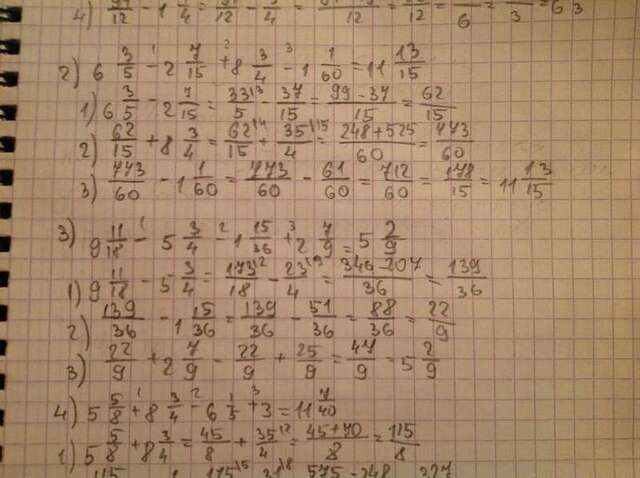 2) 6 3/5 - 2 7/15 + 8 3/4 - 1 1/60 = 11 13/15
1) 6 3/5 - 2 7/15 = 33/5 - 37/15 = 99-37/15 = 62/15
2) 62/15 + 8 3/4 = 62/15 + 35/4 = 248+525/60 = 773/60
3) 773/60 - 1 1/60 = 773/60 - 61/60 = 712/60 = 178/15 = 11 13/15
3) 9 11/18 - 5 3/4 - 1 15/36 + 2 7/9 = 5 2/9
1) 9 11/18 - 5 3/4 = 173/18 - 23/4 = 346-207/36 = 139/36
2) 139/36 - 1 15/36 = 139/36 - 51/36 = 88/36 = 22/9
3) 22/9 + 2 7/9 = 22/9 + 25/9 = 47/9 = 5 2/9
4) 5 5/8 + 8 3/4 - 6 1/5 + 3 = 11 7/40
1) 5 5/8 + 8 3/4 = 45/8 + 35/4 = 45+70/8 = 115/8